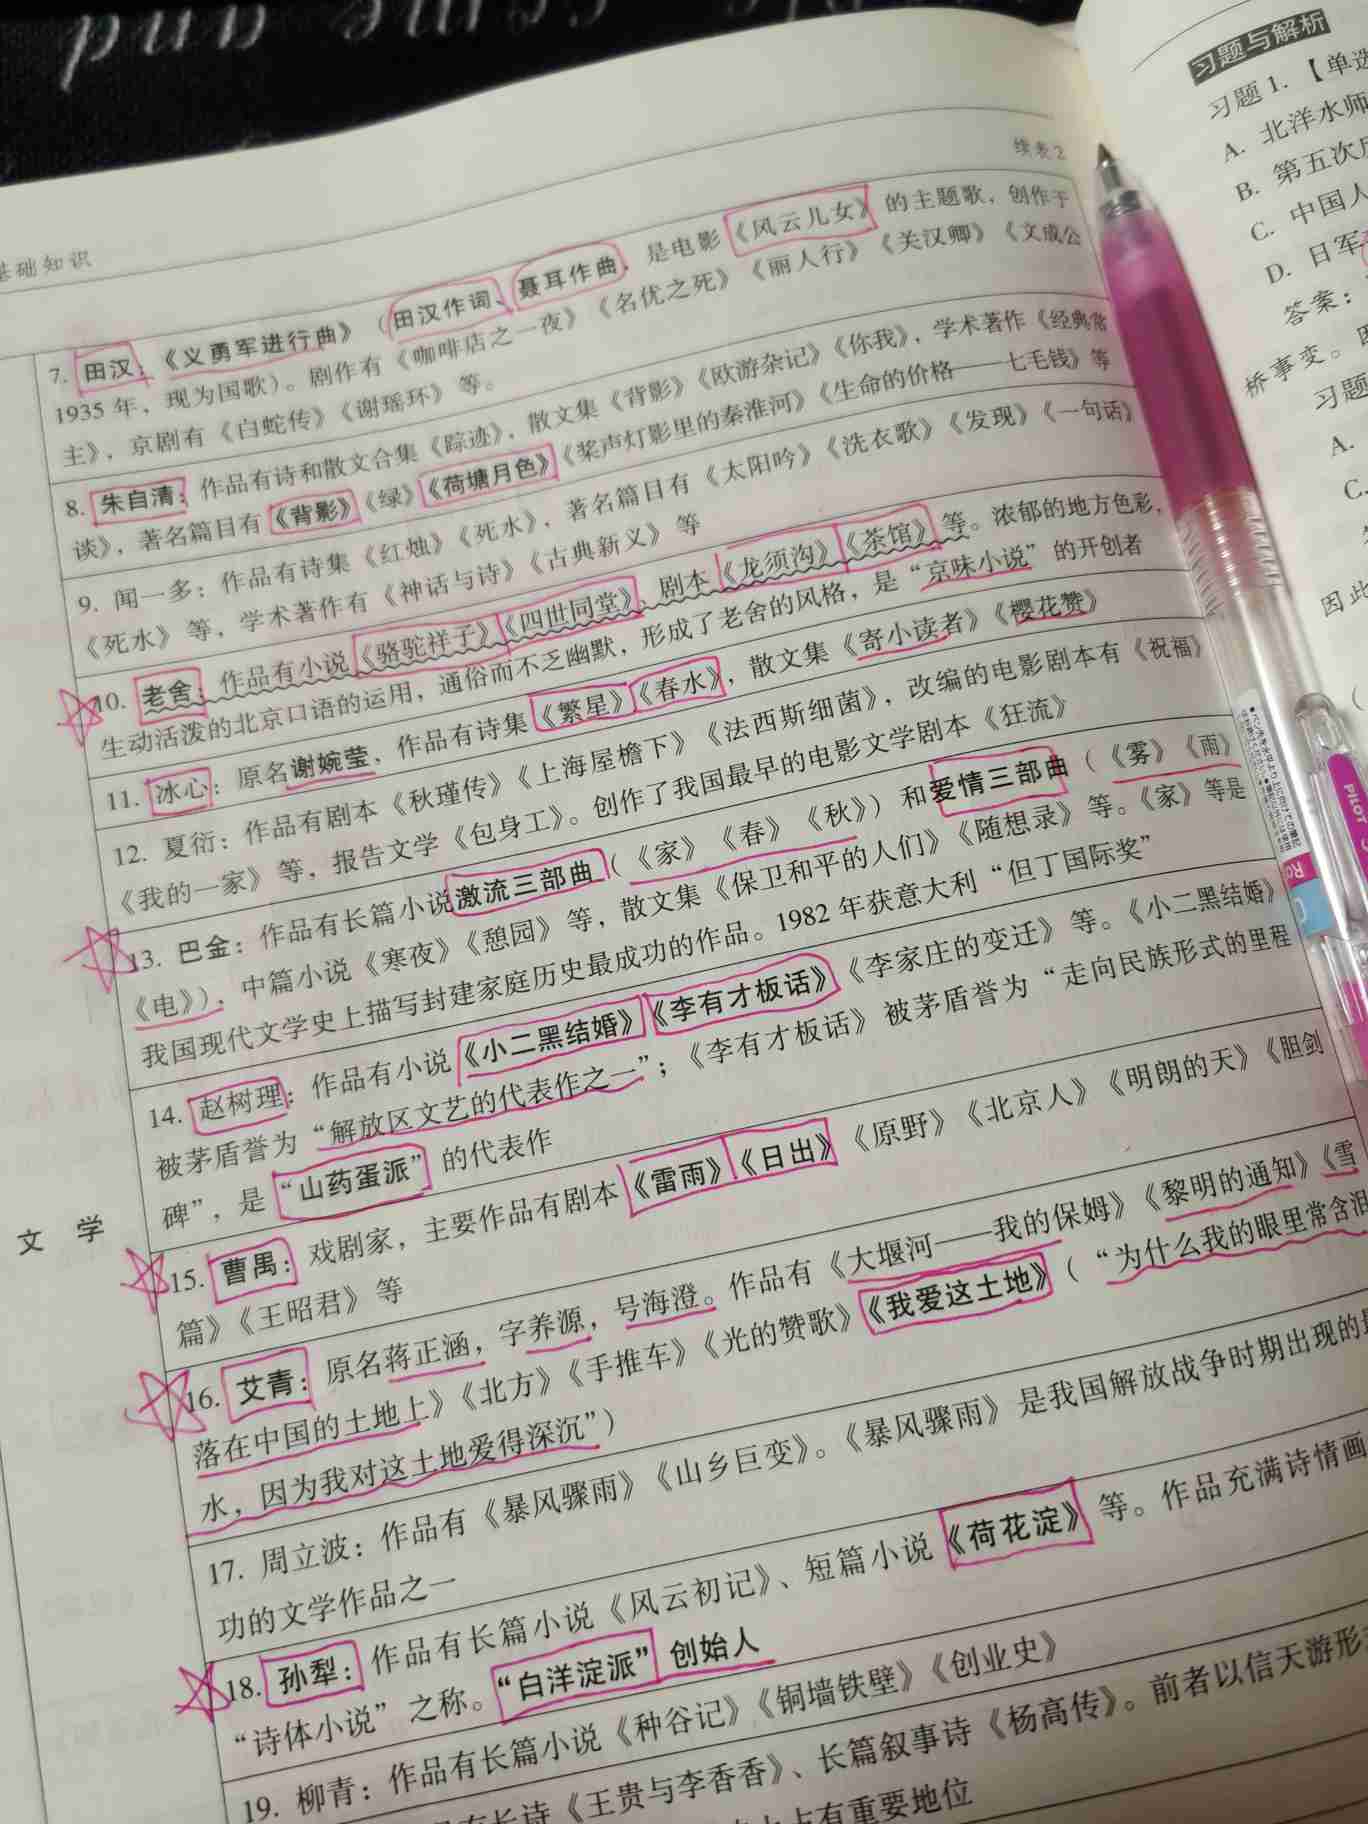 come and
续表2
基础知识
7. 田汉：《义勇军进行曲》（田汉作词、聂耳作曲，是电影《风云儿女》的主题歌，创作于
1935 年，现为国歌）。剧作有《咖啡店之一夜》《名优之死》《丽人行》《关汉卿》《文成公
主》，京剧有《白蛇传》《谢瑶环》等。
8. 朱自清：作品有诗和散文合集《踪迹》，散文集《背影》《欧游杂记》《你我》，学术著作《经典常
谈》，著名篇目有《背影》《绿》《荷塘月色》《桨声灯影里的秦淮河》《生命的价格——七毛钱》等
9. 闻一多：作品有诗集《红烛》《死水》，著名篇目有《太阳吟》《洗衣歌》《发现》《一句话》
《死水》等，学术著作有《神话与诗》《古典新义》等
10. 老舍：作品有小说《骆驼祥子》《四世同堂》，剧本《龙须沟》《茶馆》等。浓郁的地方色彩，
生动活泼的北京口语的运用，通俗而不乏幽默，形成了老舍的风格，是“京味小说”的开创者
11. 冰心：原名谢婉莹，作品有诗集《繁星》《春水》，散文集《寄小读者》《樱花赞》
12. 夏衍：作品有剧本《秋瑾传》《上海屋檐下》《法西斯细菌》，改编的电影剧本有《祝福》
《我的一家》等，报告文学《包身工》。创作了我国最早的电影文学剧本《狂流》
13. 巴金：作品有长篇小说激流三部曲（《家》《春》《秋》）和爱情三部曲（《雾》《雨》
《电》），中篇小说《寒夜》《憩园》等，散文集《保卫和平的人们》《随想录》等。《家》等是
我国现代文学史上描写封建家庭历史最成功的作品。1982 年获意大利“但丁国际奖”
14. 赵树理：作品有小说《小二黑结婚》《李有才板话》《李家庄的变迁》等。《小二黑结婚》
被茅盾誉为“解放区文艺的代表作之一”；《李有才板话》被茅盾誉为“走向民族形式的里程
碑”，是“山药蛋派”的代表作
文学
15. 曹禺：戏剧家，主要作品有剧本《雷雨》《日出》《原野》《北京人》《明朗的天》《胆剑
篇》《王昭君》等
16. 艾青：原名蒋正涵，字养源，号海澄。作品有《大堰河——我的保姆》《黎明的通知》《雪
落在中国的土地上》《北方》《手推车》《光的赞歌》《我爱这土地》（“为什么我的眼里常含泪
水，因为我对这土地爱得深沉”）
17. 周立波：作品有《暴风骤雨》《山乡巨变》。《暴风骤雨》是我国解放战争时期出现的
功的文学作品之一
18. 孙犁：作品有长篇小说《风云初记》、短篇小说《荷花淀》等。作品充满诗情画
“诗体小说”之称。“白洋淀派”创始人
19. 柳青：作品有长篇小说《种谷记》《铜墙铁壁》《创业史》
有长诗《王贵与李香香》、长篇叙事诗《杨高传》。前者以信天游形
占有重要地位
习题与解析
习题 1.【单选
A. 北洋水师
B. 第五次
C. 中国人
D. 日军
答案：
桥事变。
习题
A.
C.
因此
PILOT